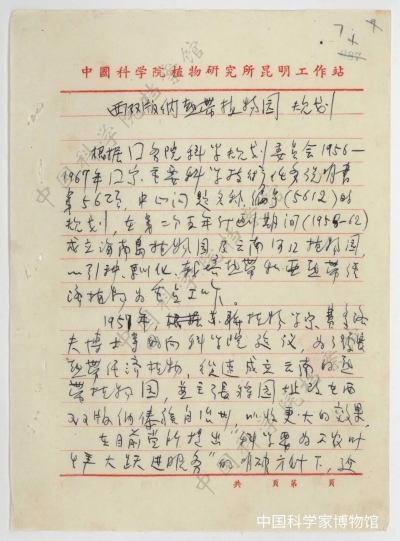 7.4
中國科学院植物研究所昆明工作站
西双版纳热带植物园 规划
根据国务院科学规划委员会1956—
1967年国家重要科学技术任务说明书
第56项,中心问题名称、编号(5612)的
规划,在第二个五年计划期间(1958-62)
成立海南岛植物园及云南河口植物园,
以引种、驯化、栽培热带和亚热带经
济植物为重点工作。
1957年,苏联植物学家费
夫博士等向科学院建议,为了
热带经济植物,促进成立云南的
带植物园,并主张将园址改在西
双版纳傣族自治州,以收更大的效果
在目前党所提出"科学要为工农业
生产大跃进服务"的明确方针下,
共 頁第 頁
中国科学家博物馆